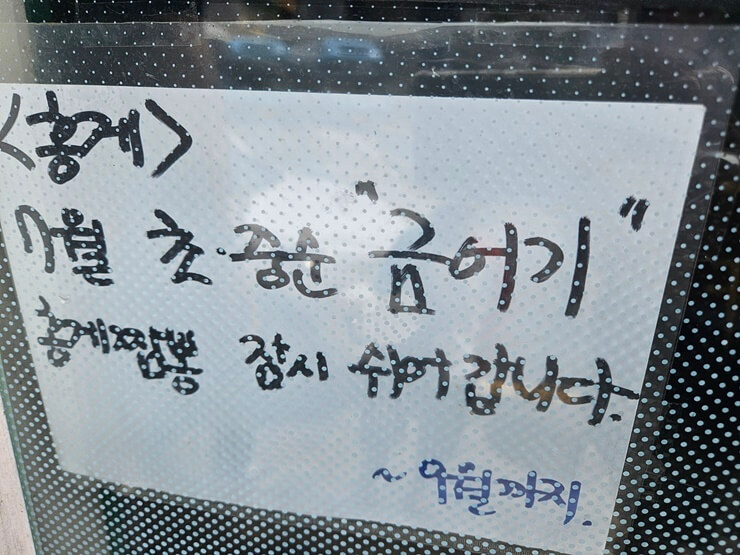 <홍게>
7월 초·중순 "금어기"
잠시 쉬어 갑니다.
~ 9월까지.